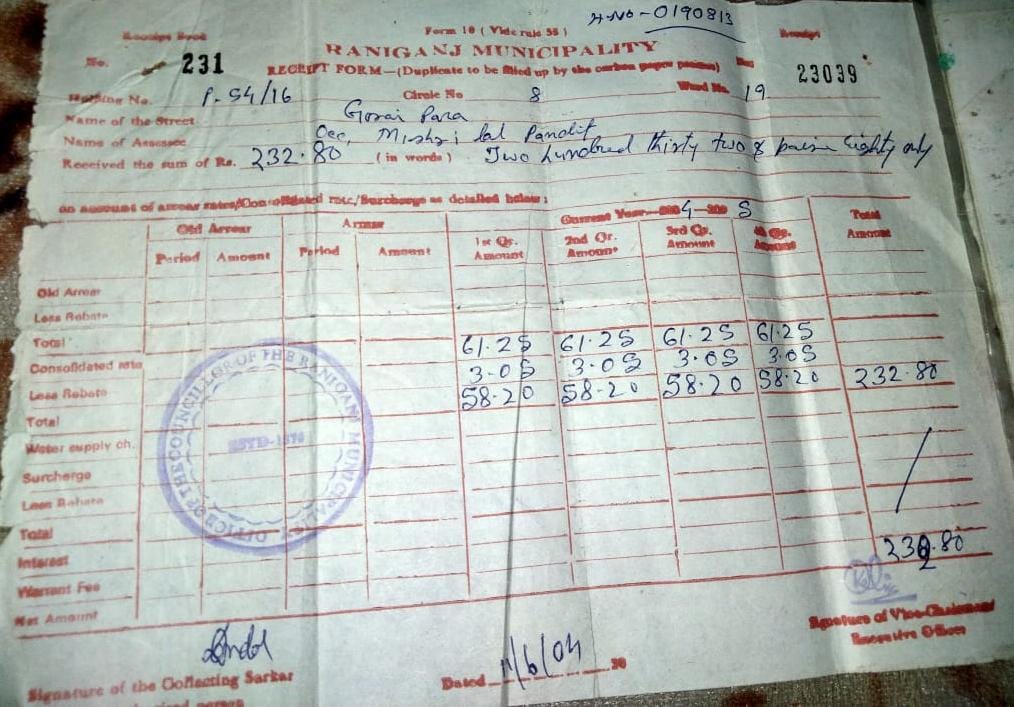 H.No-0190813
Receipt Book Form 10 ( Vide rule 55 ) Receipt
No. 231 RANIGANJ MUNICIPALITY No. 23039
RECEIPT FORM—(Duplicate to be filled up by the carbon paper process)
Holding No. P-54/16 Circle No 8 Ward No. 19
Name of the Street Gorai Para
Name of Assessee Occ, Mishri lal Pandit
Received the sum of Rs. 232.80 ( in words ) Two hundred thirty two & paise Eighty only
on account of arrear rates/Consolidated rate/Surcharge as detailed below :
Old Arrear Arrear Current Year—200 4—200 5 Total Amount
Period Amount Period Amount 1st Qr. Amount 2nd Qr. Amount 3rd Qr. Amount 4th Qr. Amount
Old Arrear
Less Rebate
Total 61.25 61.25 61.25 61.25
Consolidated rate 3.05 3.05 3.05 3.05
Less Rebate 58.20 58.20 58.20 58.20 232.80
Total
Water supply ch.
Surcharge
Less Rebate
Total
Interest 232.80
Warrant Fee
Net Amount
OFFICE OF THE COUNCILLOR OF THE RANIGANJ MUNICIPALITY
ESTD-1876
Signature of Vice-Chairman
Executive Officer
Dated 11/6/04 20
Signature of the Collecting Sarkar